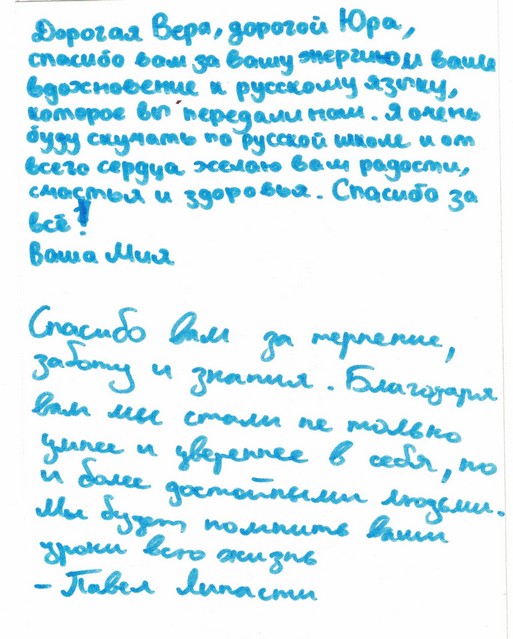 Дорогая Вера, дорогой Юра,
спасибо вам за вашу энергию и ваше
вдохновение к русскому языку,
которое вы передали нам. Я очень
буду скучать по русской школе и от
всего сердца желаю вам радости,
счастья и здоровья. Спасибо за
всё!
Ваша Мия
Спасибо вам за терпение,
заботу и знания. Благодаря
вам мы стали не только
умнее и увереннее в себя, но
и более достойными людьми.
Мы будем помнить ваши
уроки всю жизнь
- Павел Липасти